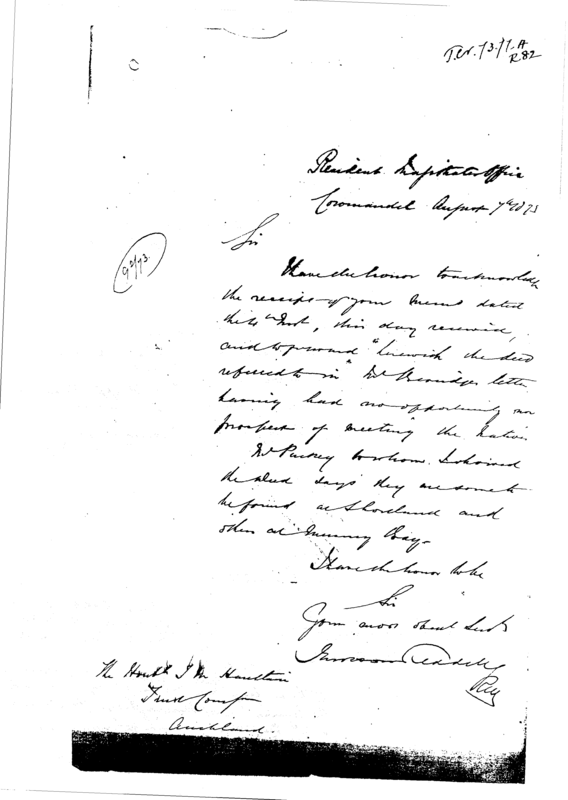 R82
Resident Magistrates Office
Coromandel August 7th 1873
92/73.
Sir
I have the honor to acknowledge
the receipt of your Memo dated
the 4th Inst, this day received,
and to forward herewith the deed
referred to in Mr letter
having had no opportunity nor
prospect of meeting the Natives
Mr Puckey to whom I showed
the deed says they are some to
be found at Shortland and
others at Mercury Bay.
I have the honor to be
Sir
Your most obedt Servt
RM
The Honble
Trust Commr
Auckland.